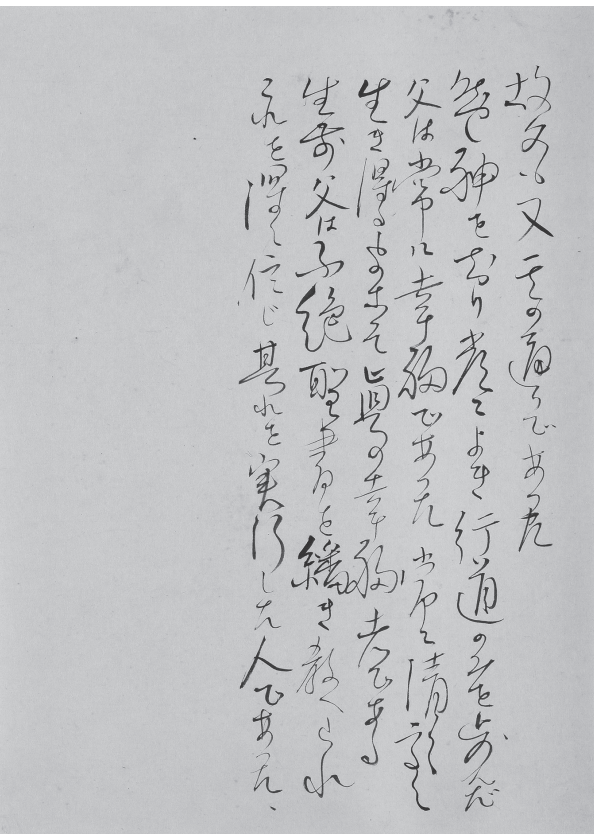 故父も又其の通りであった
然し神を知り光によき行道のみを歩んだ
父は常に幸福であった 常に清く
生き得る者こそ真の幸福者である
生前父は不絶聖書を繙き教へられ
これを深く信じ其れを実行した人であった、